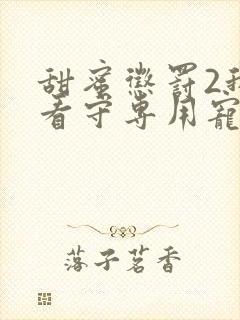 甜蜜懲罰2我
看守專用寵
落子茗香